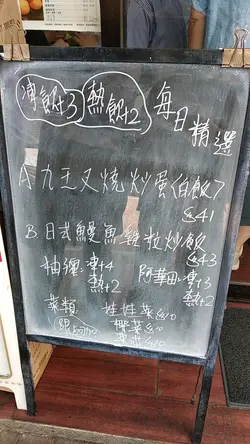 凍飲+3 熱飲+2 每日精選
A.九王叉燒炒蛋伯飯
$41
B.日式鰻魚雞粒炒飯
$43
柚繩:凍+4
熱+2
阿華田:凍+3
熱+2
菜類:
娃娃菜$10
$10